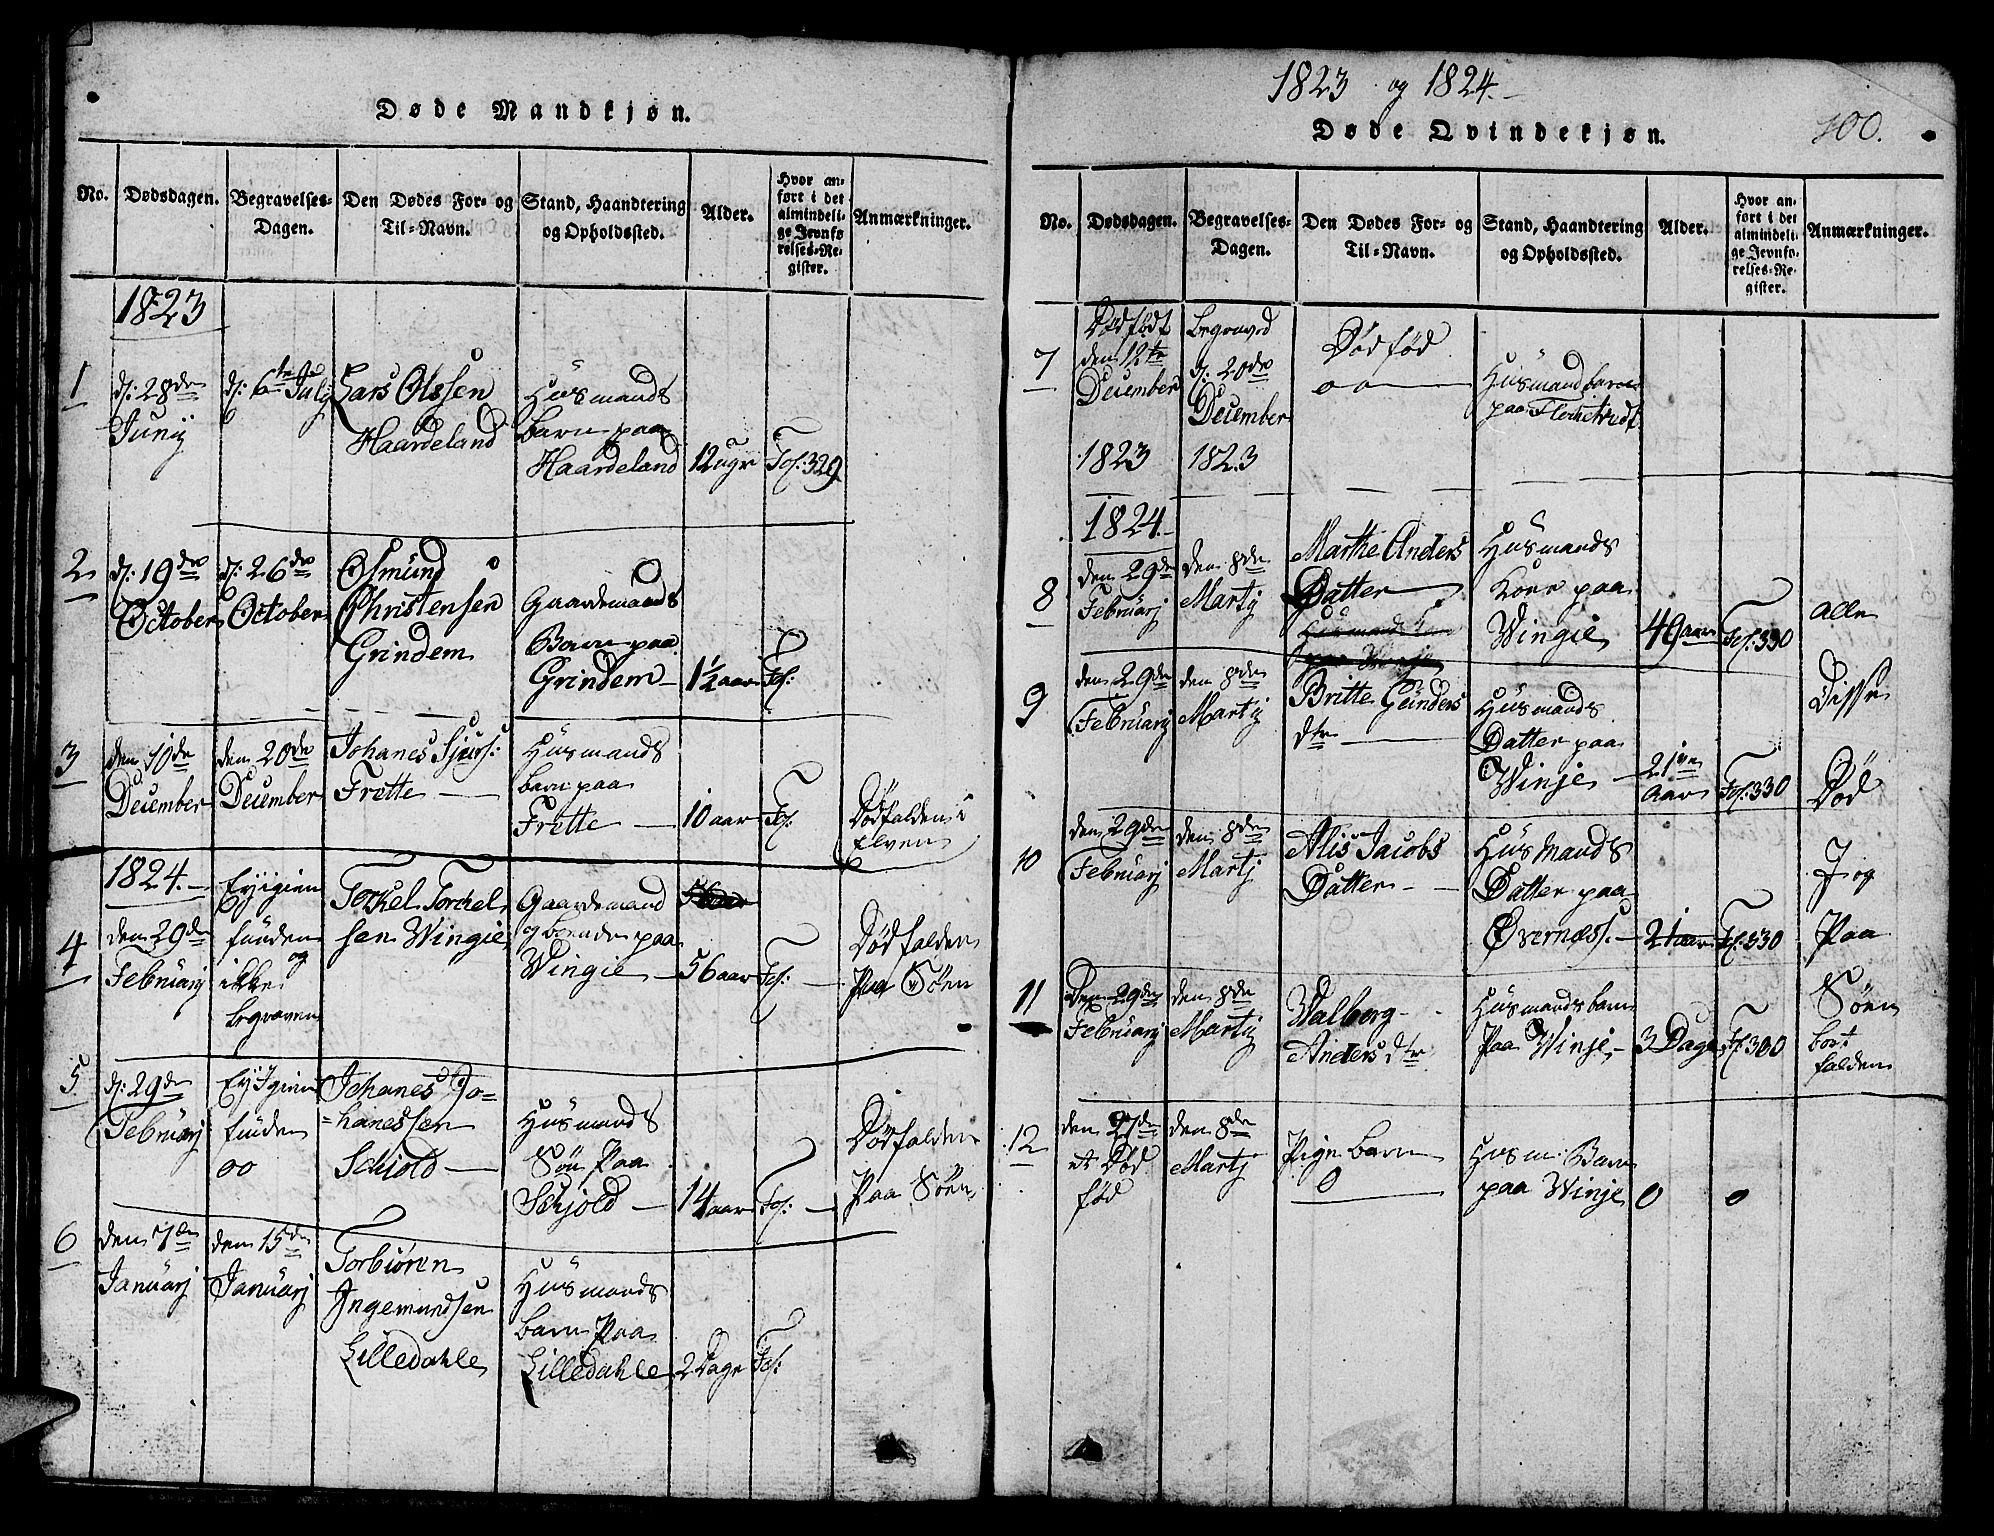 1823 og 1824.
100.
Døde Mandkjøn.
No.
Dødsdagen.
Begravelses-
Dagen.
Den Dødes For- og
Til-Navn.
Stand, Haandtering
og Opholdssted.
Alder.
Hvor an-
ført i det
almindeli-
ge Jevnfø-
relses-Re-
gister.
Anmærkninger.
1823
1
d: 28de
Junij
d: 6te July
Lars Olssen
Haardeland
Huusmands
barn paa
Haardeland
12 ugr
Fol: 329
2
d: 19de
October
d: 26de
October
Osmund
Christensen
Grindem
Gaardemands
Barn paa
Grindem
1½ aar
Fol:
3
den 10de
December
den 20de
December
Johanes Sjurs:
Frette
Huusmands
barn paa
Frette
10 aar
Fol:
Død falden i
Elven
1824.
4
den 29de
Februarj
Ey igien
funden
og
ikke
begraven
Torkel Torkel
sen Wingie
Gaardemand
og boende paa
Wingie
56 aar
56 aar
Fol:
Død falden
Paa Søen
5
d: 29de
Februarj
Ey Igien
funden
00
Johanes Jo-
hanessen
Schiold
Huusmands
Søn Paa
Schjold
14 aar
Fol:
Død falden
Paa Søen
6
den 7de
Januarj
den 15de
Januarj
Torbiören
Ingemundsen
Lilledahle
Huusmands
barn Paa
Lilledahle
2 Dage
Fol:
Døde Qvindekjøn.
No.
Dødsdagen.
Begravelses-
Dagen.
Den Dødes For- og
Til-Navn.
Stand, Haandtering
og Opholdssted.
Alder.
Hvor an-
ført i det
almindeli-
ge Jevnfø-
relses-Re-
gister.
Anmærkninger.
7
Død født
den 12te
December
1823
begraved
d: 20de
December
1823
Død fød
Huusmand barn
paa
1824.
8
den 29de
Februarj
den 8de
Martij
Marthe Anders
Datter
Huusmands
Kone paa
Wingie
49 aar
Fol: 330
alle
9
den 29de
Februarj
den 8de
Martij
Britte Gunders
dtr
Huusmands
Datter paa
Winje
21
aar
Fol: 330
Disse
Død
10
den 29de
Februarj
den 8de
Martj
Alis Jacobs
Datter
Huus Mands
Datter paa
Øvernæss.
21 aar
Fol: 330
J og
Paa
11
Den 29de
Februarj
den 8de
Martij
Walberg
Anders dtr
Huusmands barn
Paa Winje
3 Dage
Fol: 300
Søen
bort
falden
12
den 27de
et Død
fød
den 8de
Martj
Pige barn
0
Huusm: Barn
paa Winje
0
0